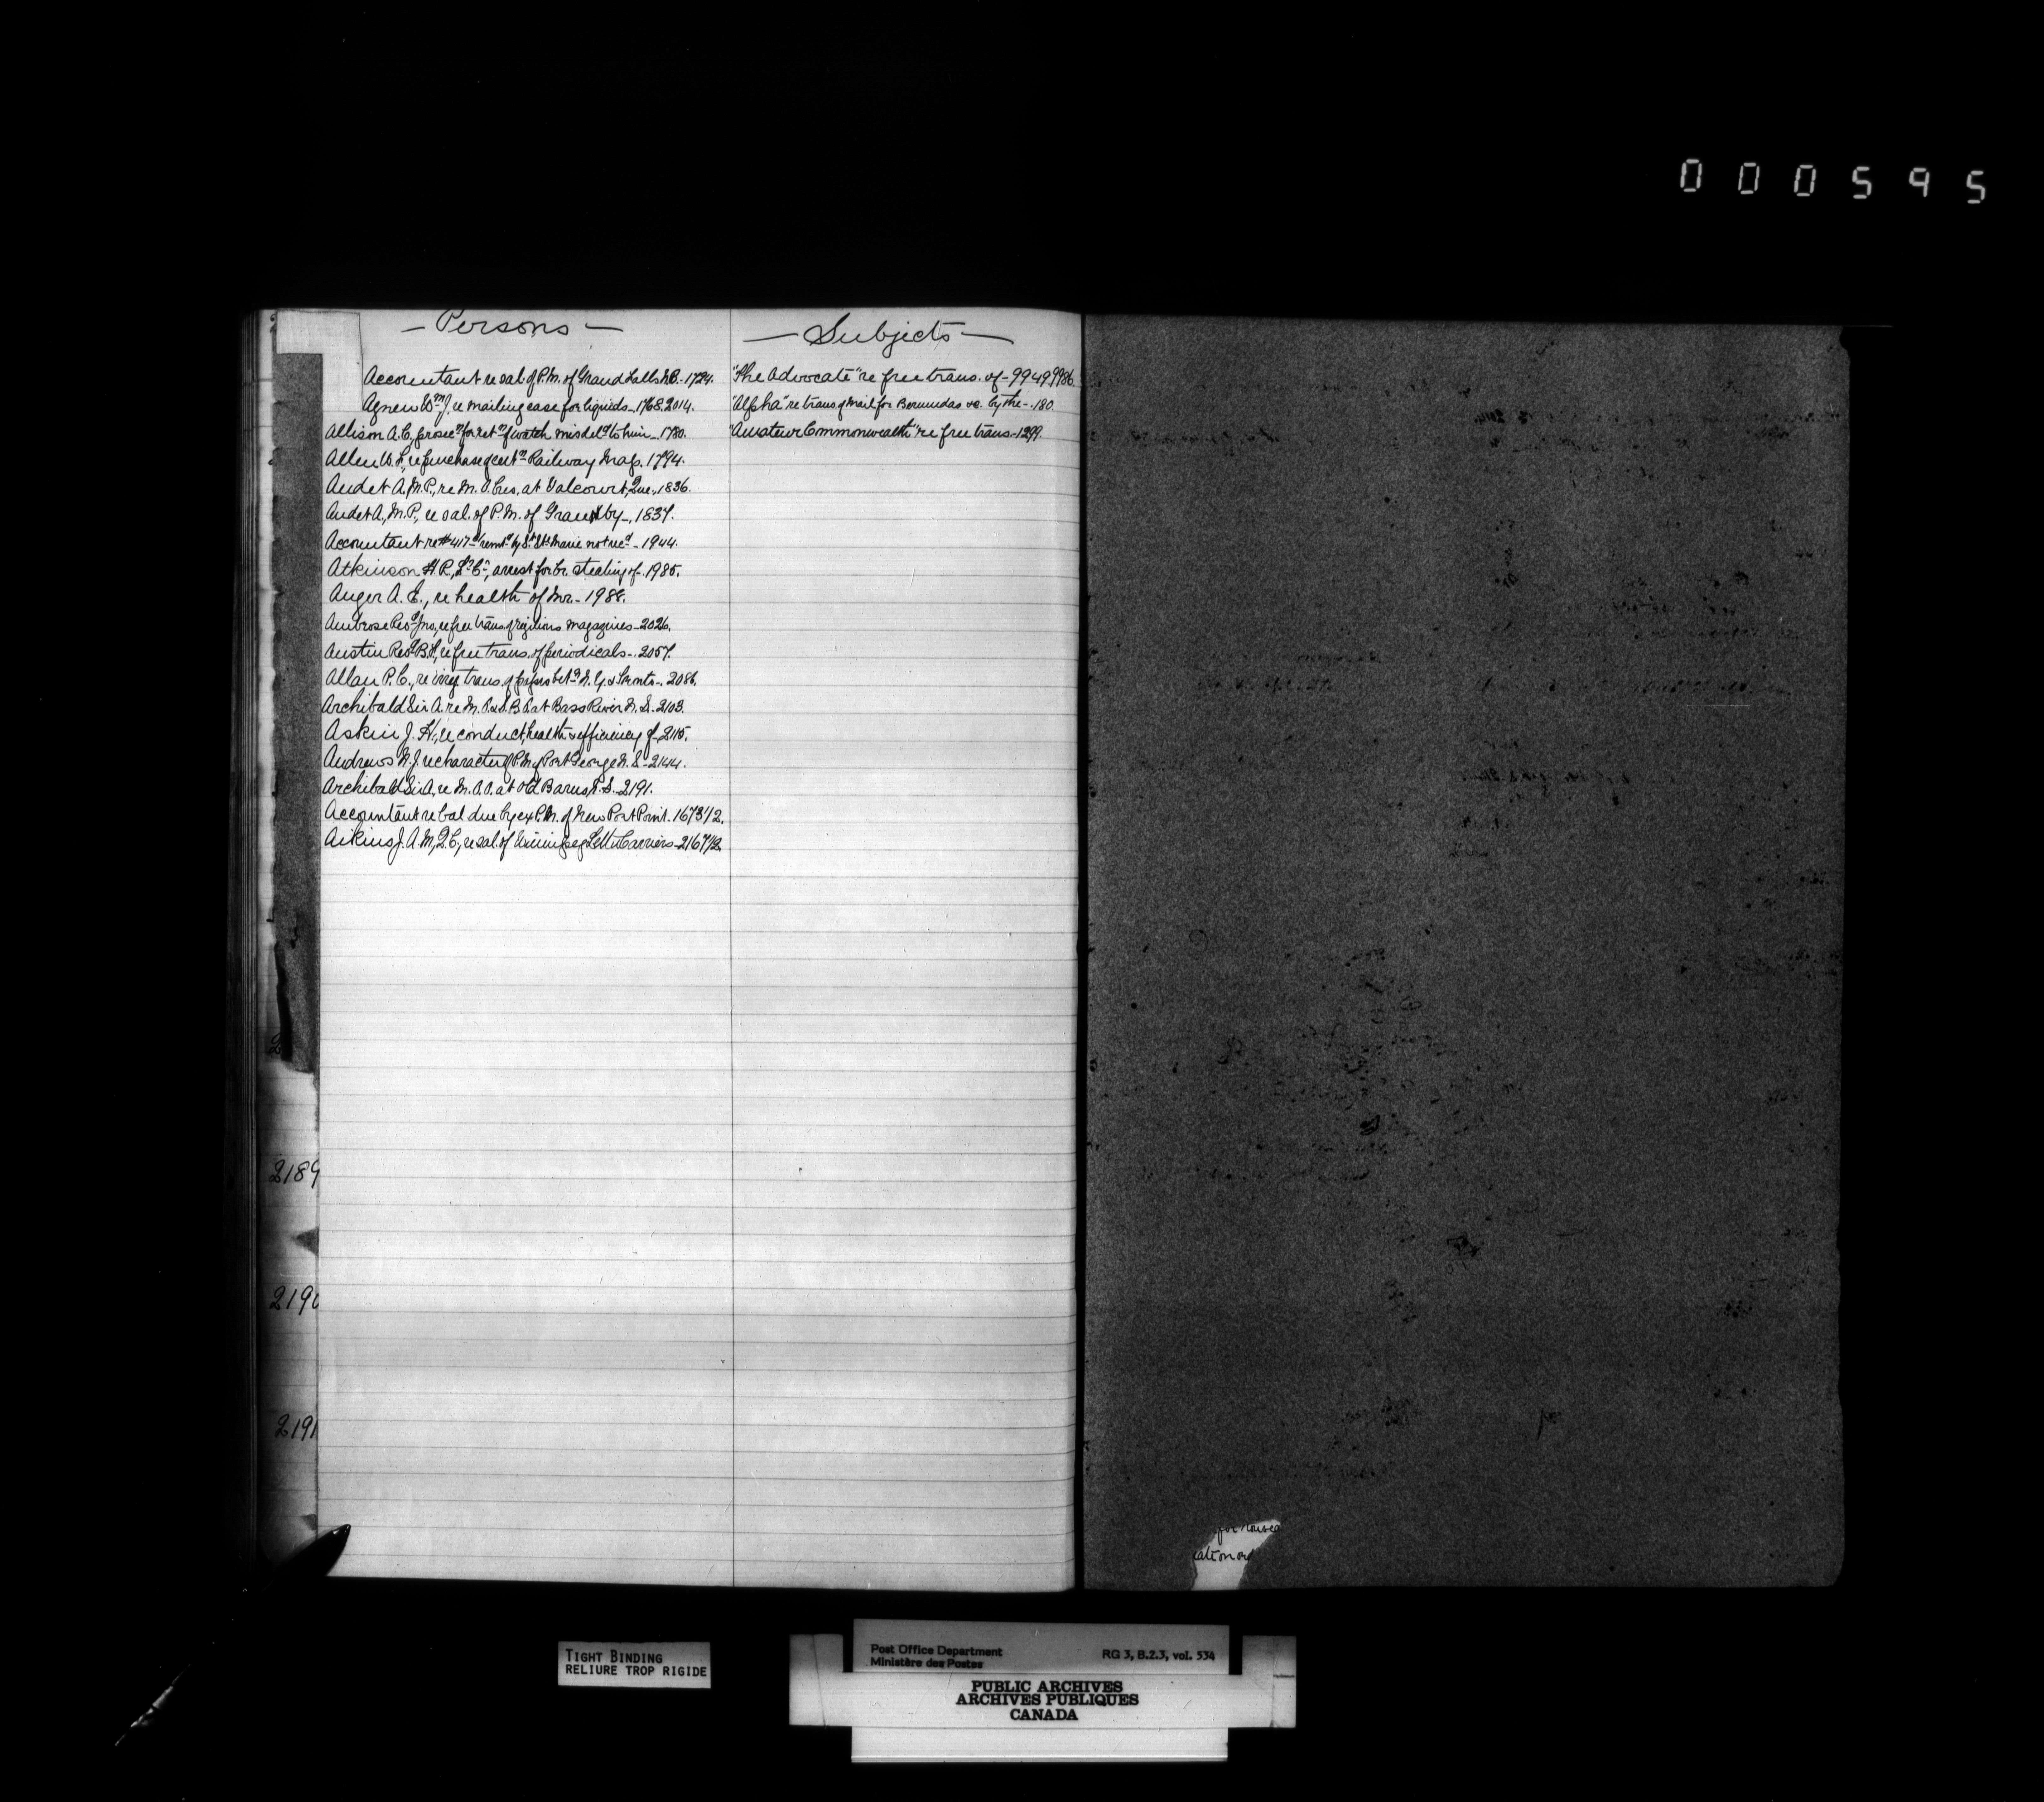 000595
— Persons —
Accountant re sal. of P.M. of Grand Falls N.B. - 1724.
Agnew Wm J, re mailing case for liquids - 1768. 2014.
Allison A.C, prosec'n for ret'n of watch misdel'd to him - 1780.
Allen W. F, re purchase of cert'n Railway Map. 1794.
Audet A, M.P., re M. O. bus. at Valcourt, Que., 1836.
Audet A., M.P., re sal. of P.M. of Granby -, 1837.
Accountant re #417 remt'd by St. Ste Marie not rec'd - 1944.
Atkinson H R, arrest for stealing of - 1985.
Auger A. E., re health of Mr. - 1988.
Ambrose Rev'd Jno, re free trans. of religious magazines - 2026.
Austin Rev'd B. F, re free trans. of periodicals -. 2057.
Allan P. C., re irreg. trans. of papers bet'n N. Y. & Toronto -. 2086.
Archibald Sir A. re M. O. & S. B. at Bass River N. S. - 2103.
Askin J. H., re conduct, health & efficiency of - 2115.
Andrews N. J. re character of P.M. of Port George N. S. - 2144.
Archibald Sir A, re M. O. O. at Old Barns, N. S. - 2191.
Accountant re bal due by ex P.M. of New Port Point. 1673 1/2.
Aikins J. A. M, Q. C., re sal. of Winnipeg Lett'r Carriers - 2167 1/2.
— Subjects —
"The Advocate" re free trans. of - 994 99986.
"Alpha" re trans of Mail for Bermudas &c. by the -. 180.
"Amateur Commonwealth" re free trans - 1299.
2189
2190
2191
for
ation
TIGHT BINDING
RELIURE TROP RIGIDE
Post Office Department RG 3, B.2.3, vol. 534
Ministère des Postes
PUBLIC ARCHIVES
ARCHIVES PUBLIQUES
CANADA